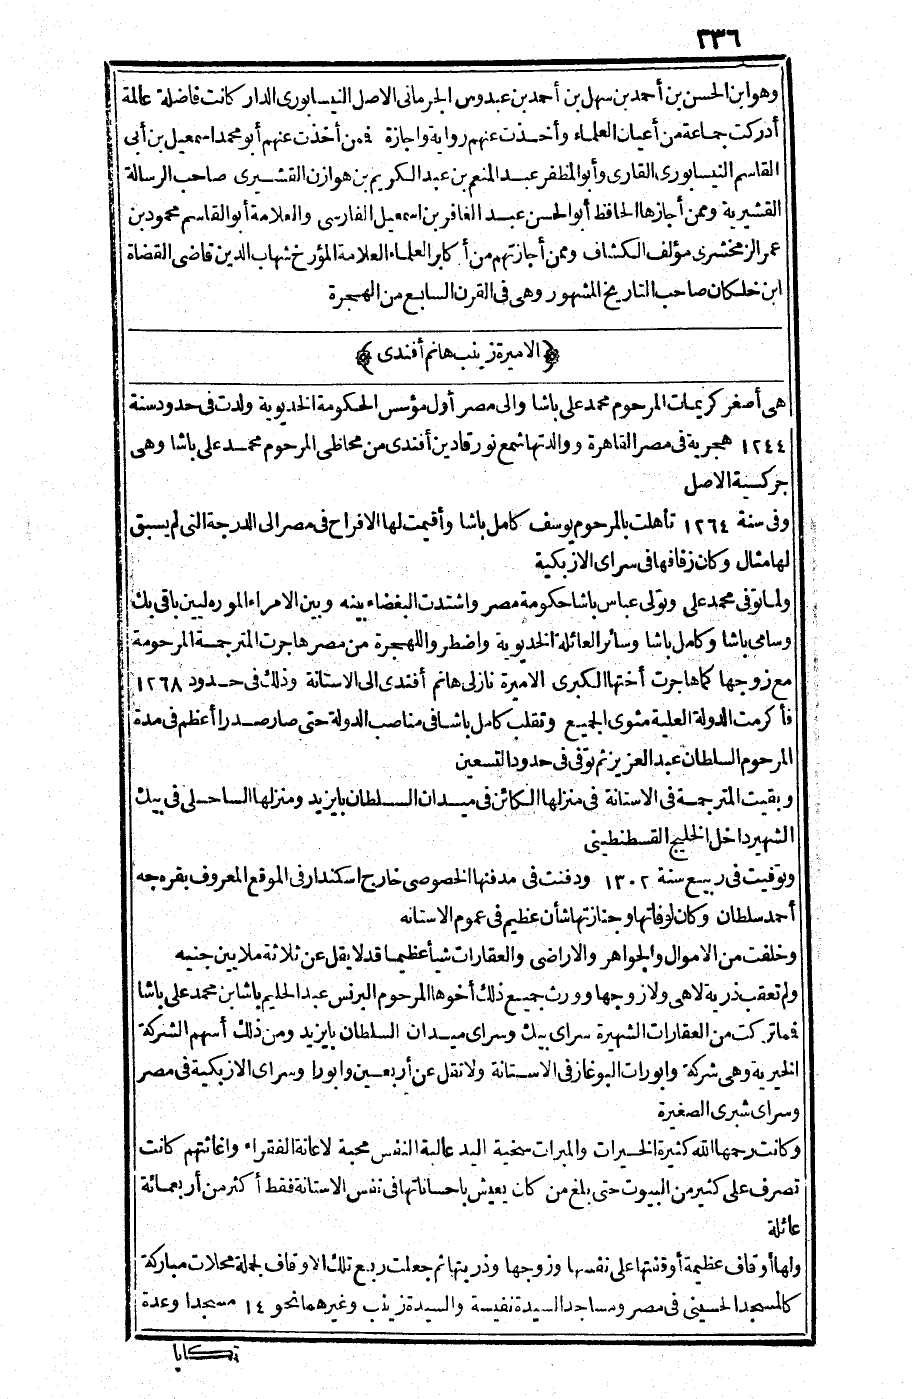 ٣٣٦
وهو ابن الحسن بن أحمد بن سهل بن أحمد بن عبدوس الجرماني الاصل النيسابوري الدار كانت فاضلة عالمة
أدركت جماعة من أعيان العلماء وأخذت عنهم رواية واجازة فمن أخذت عنهم أبو محمد اسمعيل بن أبي
القاسم النيسابوري القارى وأبو المظفر عبد المنعم بن عبد الكريم بن هوازن القشيرى صاحب الرسالة
القشيرية وممن أجازها الحافظ أبو الحسن عبد الغافر بن اسمعيل الفارسى والعلامة أبو القاسم محمود بن
عمر الزمخشرى مؤلف الكشاف وممن أجازتهم من أكابر العلماء العلامة المؤرخ شهاب الدين قاضى القضاة
ابن خلكان صاحب التاريخ المشهور وهى فى القرن السابع من الهجرة
﴿الاميرة زينب هانم أفندى﴾
هى أصغر كريمات المرحوم محمد على باشا والى مصر أول مؤسس الحكومة الخديوية ولدت فى حدود سنة
١٢٤٤ هجرية فى مصر القاهرة ووالدتها شمع نور قادين أفندى من محاظى المرحوم محمد على باشا وهى
جركسية الاصل
وفى سنة ١٢٦٤ تأهلت بالمرحوم يوسف كامل باشا وأقيمت لها الافراح فى مصر الى الدرجة التى لم يسبق
لها مثال وكان زفافها فى سراى الازبكية
ولما توفى محمد على وتولى عباس باشا حكومة مصر واشتدت البغضاء بينه وبين الامراء الموره ليين باقى بك
وسامى باشا وكامل باشا وسائر العائلة الخديوية واضطروا للهجرة من مصر هاجرت المترجمة المرحومة
مع زوجها كما هاجرت أختها الكبرى الاميرة نازلى هانم أفندى الى الاستانة وذلك فى حدود ١٢٦٨
فأكرمت الدولة العلية مثوى الجميع وتقلب كامل باشا فى مناصب الدولة حتى صار صدرا أعظم فى مدة
المرحوم السلطان عبد العزيز ثم توفى فى حدود التسعين
وبقيت المترجمة فى الاستانة فى منزلها الكائن فى ميدان السلطان بايزيد ومنزلها الساحلى فى ببك
الشهير داخل الخليج القسطنطينى
وتوفيت فى ربيع سنة ١٣٠٢ ودفنت فى مدفنها الخصوصى خارج اسكندار فى الموقع المعروف بقره جه
أحمد سلطان وكان لوفاتها وجنازتها شأن عظيم فى عموم الاستانه
وخلفت من الاموال والجواهر والاراضى والعقارات شيأ عظيما قد لا يقل عن ثلاثة ملايين جنيه
ولم تعقب ذرية لا هى ولا زوجها وورث جميع ذلك أخوها المرحوم البرنس عبد الحليم باشا بن محمد على باشا
فما تركت من العقارات الشهيرة سراى ببك وسراى ميدان السلطان بايزيد ومن ذلك أسهم الشركة
الخيرية وهى شركة وابورات البوغاز فى الاستانة ولا تقل عن أربعين وابورا وسراى الازبكية فى مصر
وسراى شبرى الصغيرة
وكانت رحمها الله كثيرة الخيرات والمبرات سخية اليد عالية النفس محبة لاعانة الفقراء واغاثتهم كانت
تصرف على كثير من البيوت حتى بلغ من كان يعيش باحساناتها فى نفس الاستانة فقط أكثر من أربعمائة
عائلة
ولها أوقاف عظيمة أوقفتها على نفسها وزوجها وذريتها ثم جعلت ريع تلك الاوقاف لجملة محلات مباركة
كالمسجد الحسينى فى مصر ومساجد السيدة نفيسة والسيدة زينب وغيرهما نحو ١٤ مسجدا وعدة
تكايا